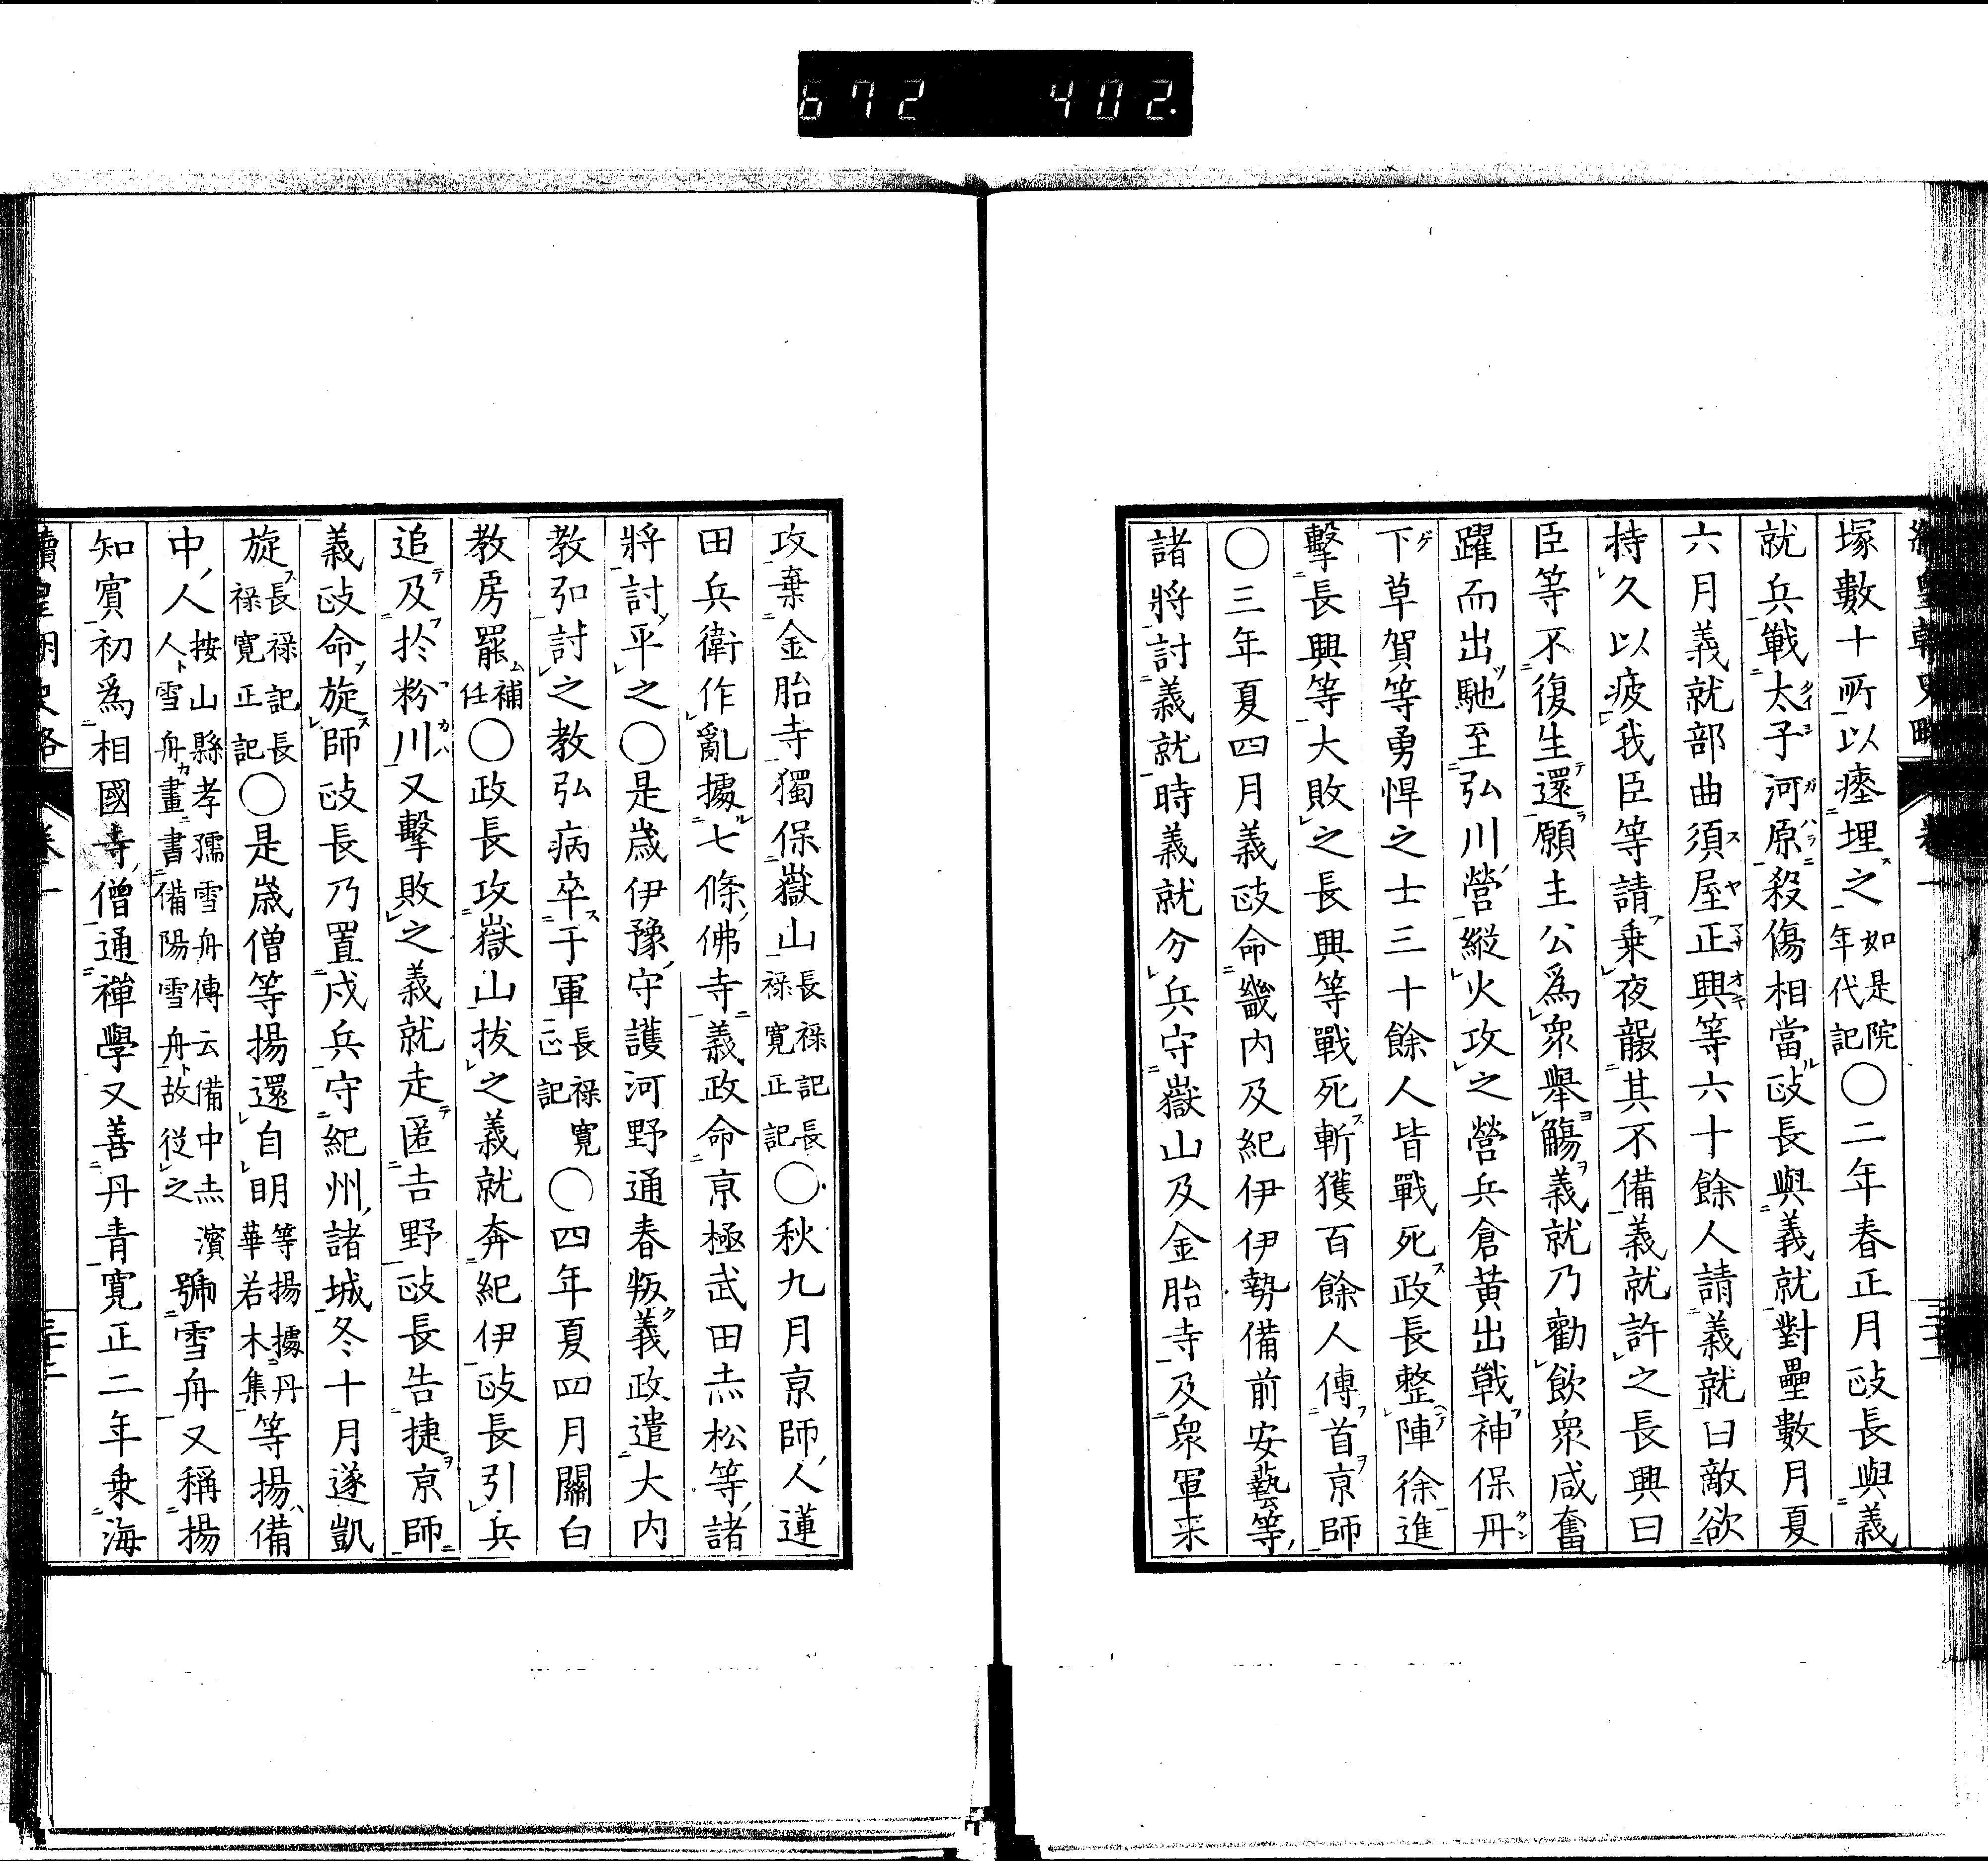 672 402.
塚數十所以瘞埋之如是院年代記○二年春正月政長與義
就兵戰太子河原殺傷相當政長與義就對壘數月夏
六月義就部曲須屋正興等六十餘人請義就曰敵欲
持久以疲我臣等請乘夜襲其不備義就許之長興曰
臣等不復生還願主公爲衆舉觴義就乃勸飲衆咸奮
躍而出馳至弘川營縱火攻之營兵倉黃出戰神保丹
下草賀等勇悍之士三十餘人皆戰死政長整陣徐進
擊長興等大敗之長興等戰死斬獲百餘人傳首京師
○三年夏四月義政命畿內及紀伊伊勢備前安藝等
諸將討義就時義就分兵守嶽山及金胎寺及衆軍来
攻棄金胎寺獨保嶽山長祿記長祿寬正記○秋九月京師人蓮
田兵衛作亂據七條佛寺義政命京極武田赤松等諸
將討平之○是歲伊豫守護河野通春叛義政遣大內
教弘討之教弘病卒于軍長祿寬正記○四年夏四月關白
教房罷補任○政長攻嶽山拔之義就奔紀伊政長引兵
追及於粉川又擊敗之義就走匿吉野政長告捷京師
義政命旋師政長乃置戍兵守紀州諸城冬十月遂凱
旋長祿記長祿寬正記○是歲僧等揚還自明等揚據丹華若木集等揚備
中人按山縣孝孺雪舟傳云備中赤濱人雪舟畫書備陽雪舟故從之號雪舟又稱揚
知賓初爲相國寺僧通禪學又善丹青寬正二年乘海
續皇朝史略 卷一